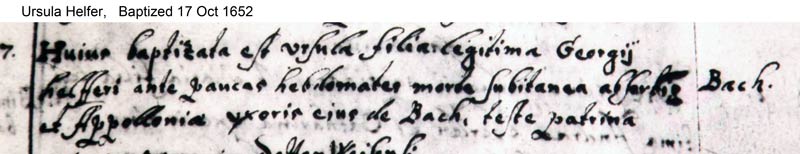 Ursula Helfer, Baptized 17 Oct 1652
7. Huius baptizata est Ursula filia legitima Georgij
Helfferi ante paucas hebdomates morte subitanea Bach.
et Appolloniæ uxoris eius de Bach, teste patrina